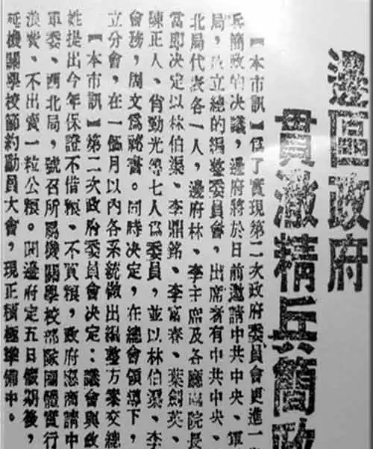 邊區政府
貫澈精兵簡政
【本市訊】爲了實現第二次政府委員會更進一
兵簡政的決議，邊府將於日前邀請中共中央、軍
局，成立總的編整委員會，出席者有中共中央、
北局代表各一人，邊府林、李主席及各廳院長
當即決定以林伯渠、李鼎銘、李富春、葉劍英、
陳正人、肖勁光等七人爲委員，並以林伯渠、李
會務，周文爲秘書。同時決定，在總會領導下，
立分會，在一個月以內各系統做出編整方案交總
【本市訊】第二次政府委員會決定：議會與政
姓提出今年保證不借糧、不買糧，政府咨商請中
軍委、西北局，號召所屬機關學校部隊團體實行
浪費、不出賣一粒公糧。聞邊府定五日假期後，
延機關學校節約動員大會，現正積極準備中。